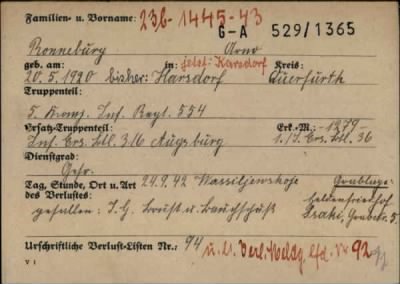 Familien- u. Vorname: 236-1445-43
G-A 529/1365
Ronneburg Arno
geb. am: in: jetzt: Karsdorf Kreis:
20.5.1920 bisher: Harsdorf Querfurth
Truppenteil:
5. Komp. Inf. Regt. 554
Ersatz-Truppenteil: Erk.-M.: -1279-
Inf. Ers. Btl. 316 Augsburg 1./I. Ers. Btl. 36
Dienstgrad:
Gefr.
Tag, Stunde, Ort u. Art 24.9.42 Wassiljewskoje Grablage:
des Verlustes: Heldenfriedhof
gefallen: I.G. Brust u. Bauchschuß
Urschriftliche Verlust-Listen Nr.: 94 u. lt. Verl. Meldg. lfd. Nr 92
V 1